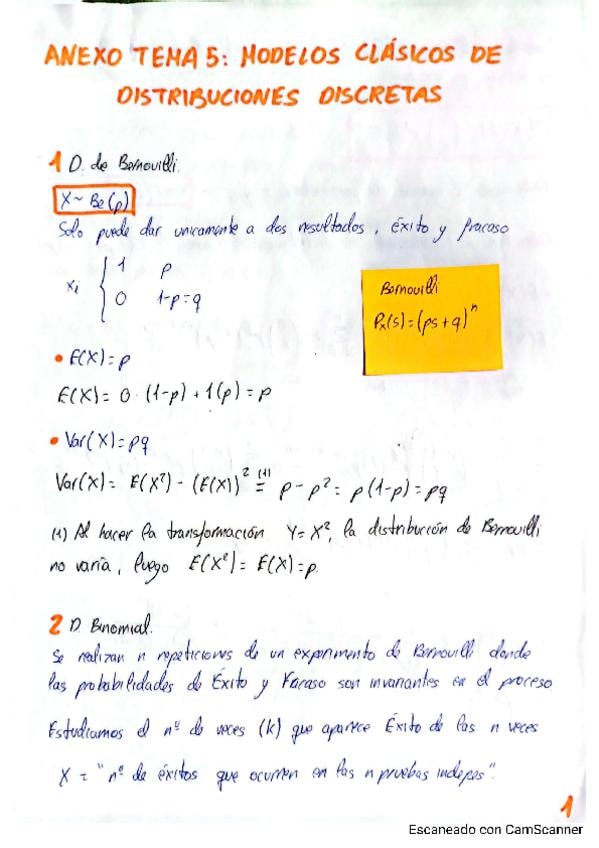 ANEXO TEMA 5: MODELOS CLÁSICOS DE
DISTRIBUCIONES DISCRETAS
1 D. de Bernouilli.
X ~ Be(p)
Solo puede dar unicamente a dos resultados, éxito y fracaso
xi { 1 p
0 1-p=q
Bernouilli
Px(s)=(ps+q)^n
• E(X)=p
E(X)= 0·(1-p)+1(p)=p
• Var(X)=pq
Var(X)= E(X²)-(E(X))² (1)= p-p²= p(1-p)=pq
(1) Al hacer la transformación Y=X², la distribución de Bernouilli
no varía, luego E(X²)=E(X)=p.
2 D. Binomial.
Se realizan n repeticiones de un experimento de Bernouilli donde
las probabilidades de Éxito y Fracaso son invariantes en el proceso
Estudiamos el nº de veces (k) que aparece Éxito de las n veces
X = "nº de éxitos que ocurren en las n pruebas indepes".
1
Escaneado con CamScanner